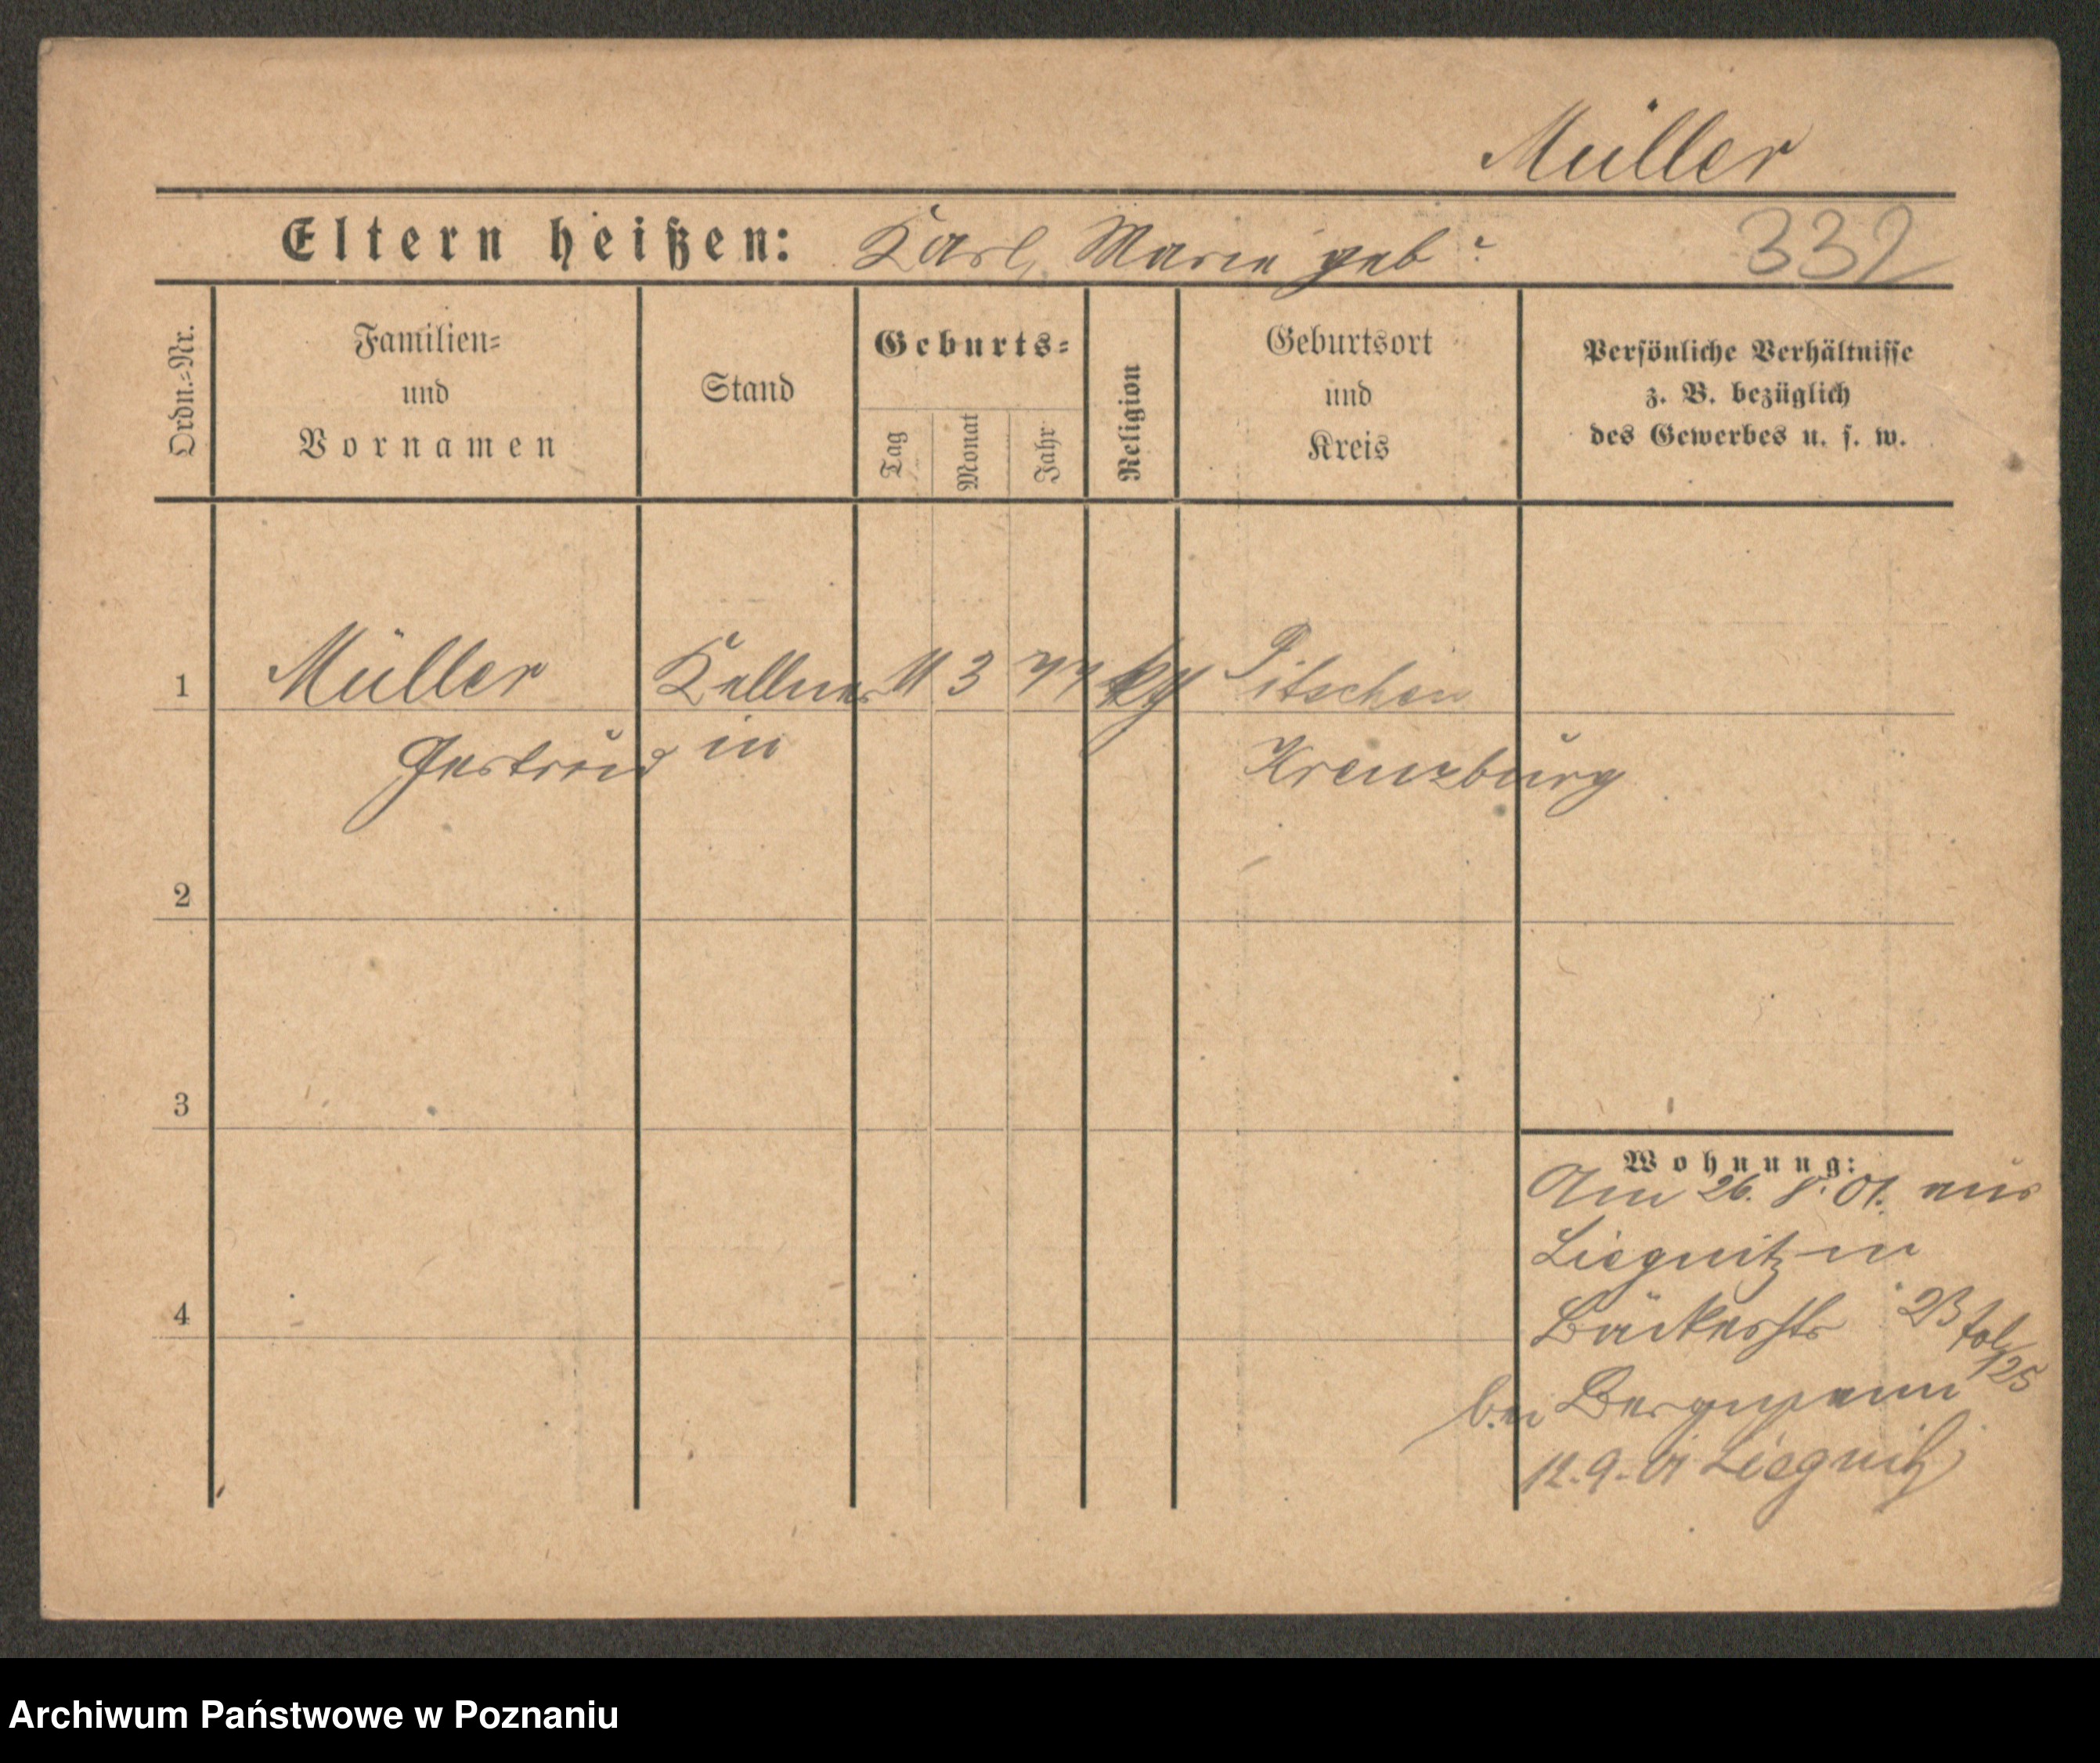 Müller
Eltern heißen: Karl, Marie geb ?
332
Ordn.=Nr.
Familien= und Vornamen
Stand
Geburts=
Tag
Monat
Jahr
Religion
Geburtsort und Kreis
Persönliche Verhältnisse
z. B. bezüglich
des Gewerbes u. s. w.
1 Müller Kellner 11 3 77 Pitschen
Gertrud in Kreuzburg
2
3
4
Wohnung:
Am 26. 8. 01. aus
Liegnitz in
Bäckerstr 23
fol
125
bei Bergmann
12.9.01 Liegnitz
Archiwum Państwowe w Poznaniu